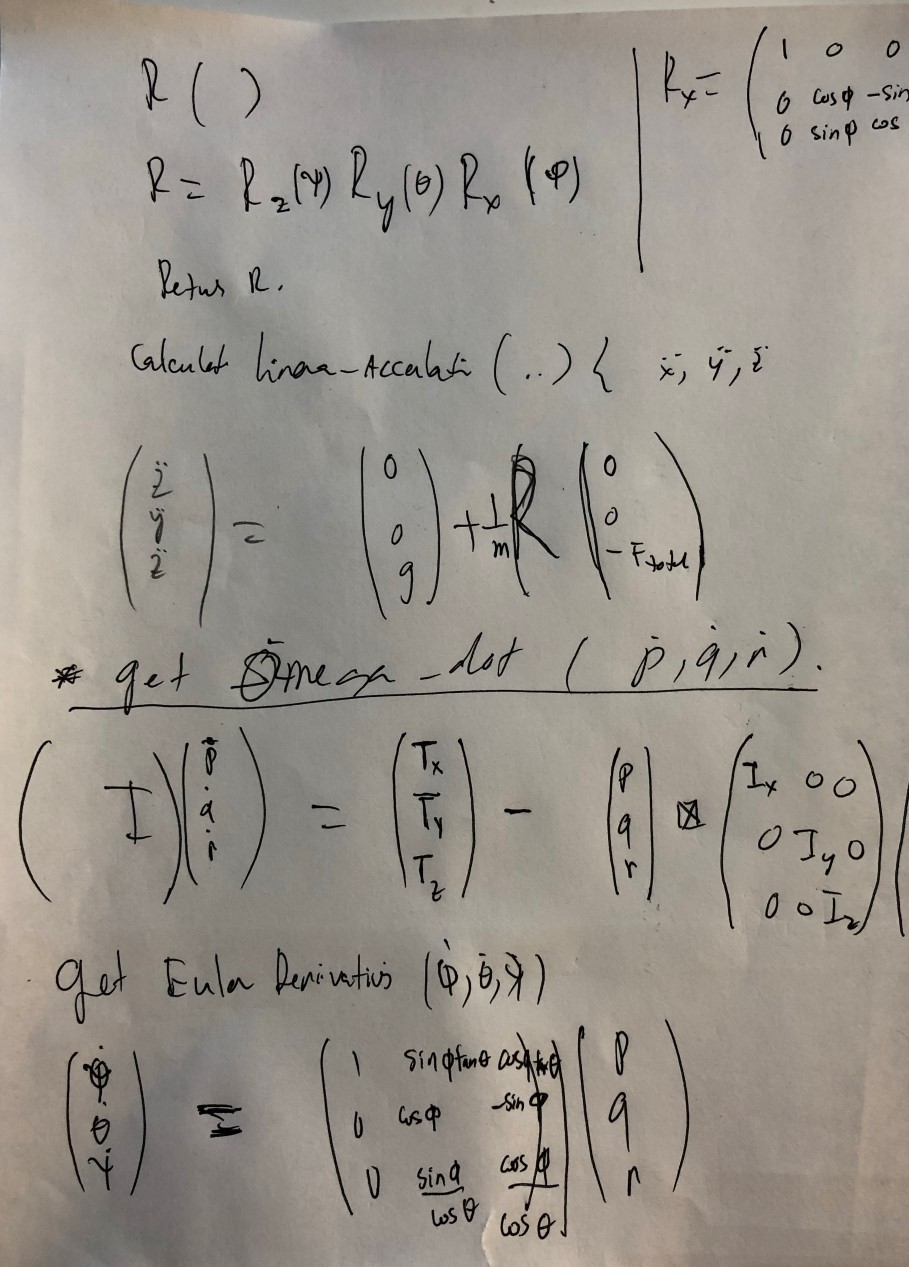 R ( )
R = R_z(ψ) R_y(θ) R_x (φ)
R_x = ( 1 0 0
0 cosφ -sin
0 sinφ cos
Retus R.
Calculat (..) { ẍ, ÿ, z̈
( z̈ ÿ z̈ ) = ( 0 0 g ) + 1/m R ( 0 0 -F_total )
* get Omega_dot ( ṗ, q̇, ṙ ).
( I ) ( ṗ q̇ ṙ ) = ( T_x T_y T_z ) - ( p q r ) ⊠ ( I_x 0 0
0 I_y 0
0 0 I_z ) (
get Euler Derivativs (φ̇, θ̇, ψ̇)
( φ̇ θ̇ ψ̇ ) = ( 1 sinφtanθ cosφtanθ
0 cosφ -sinφ
0 sinφ/cosθ cosφ/cosθ ) ( p q r )